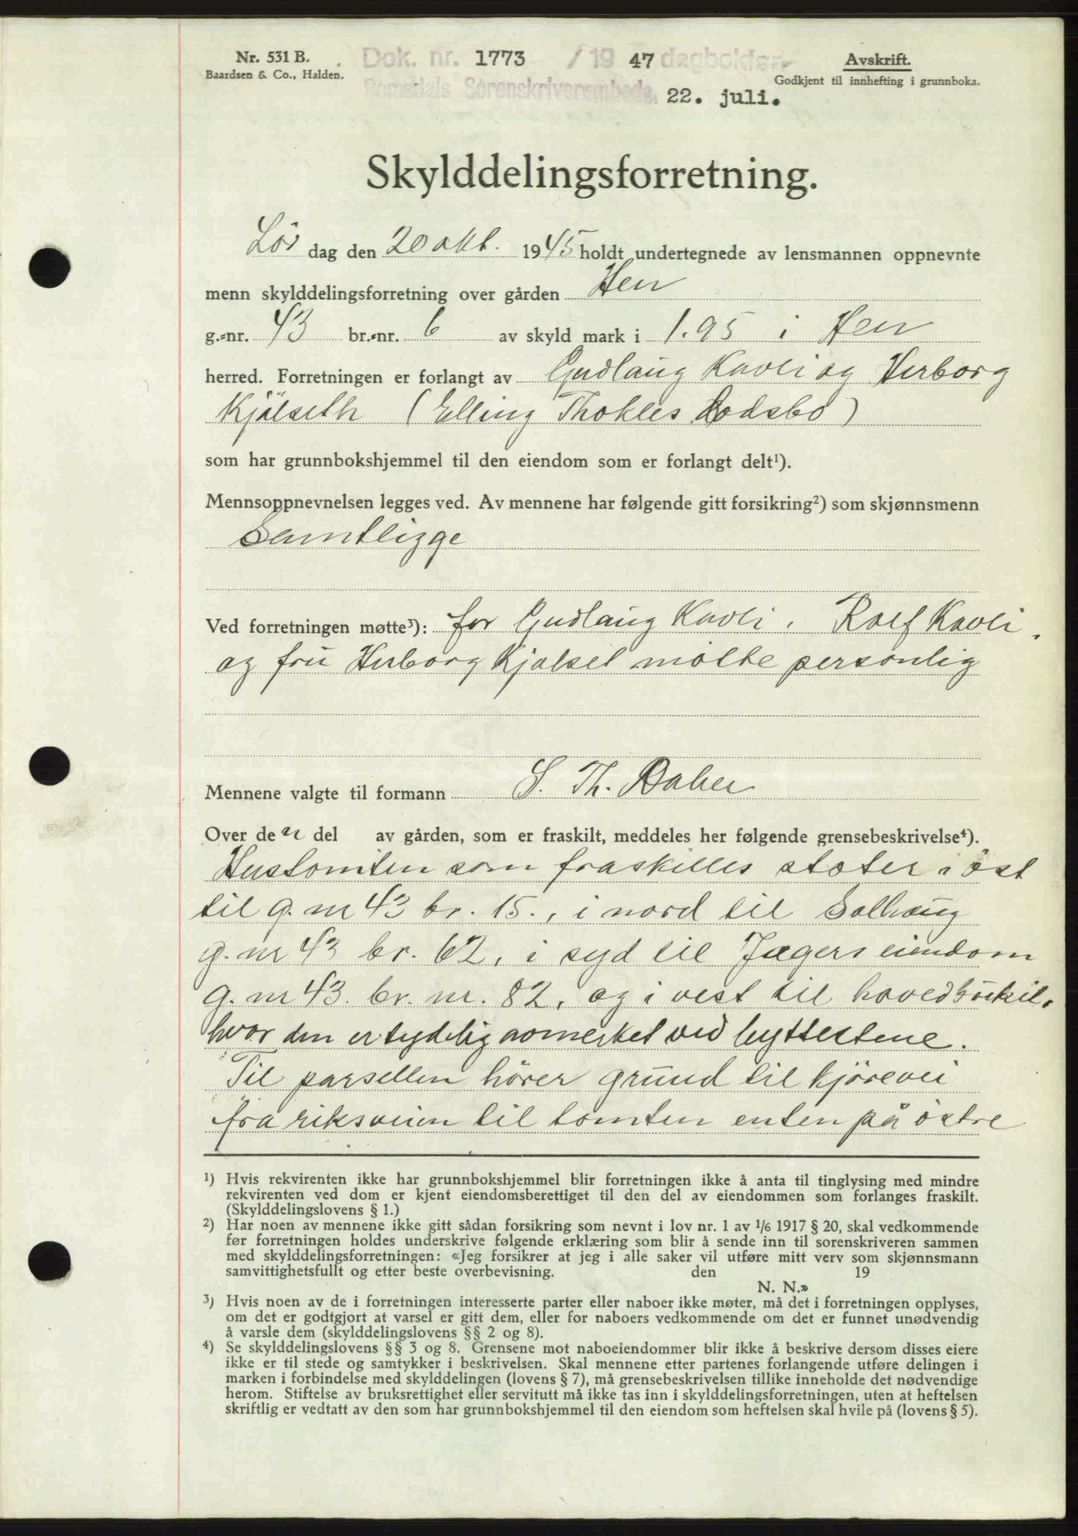 Nr. 531 B.
Baardsen & Co., Halden.
Dok. nr. 1773 / 19 47 dagboken
Romsdals Sorenskriverembede,
22. juli.
Avskrift.
Godkjent til innhefting i grunnboka.
Skylddelingsforretning.
Lör dag den 20 okt. 1945 holdt undertegnede av lensmannen oppnevnte
menn skylddelingsforretning over gården Hen
g.-nr. 43 br.-nr. 6 av skyld mark i 1.95 i Hen
herred. Forretningen er forlangt av Gudlaug Kavli og Herborg
Kjölseth (Elling Thokles Bodsbo)
som har grunnbokshjemmel til den eiendom som er forlangt delt¹).
Mennsoppnevnelsen legges ved. Av mennene har følgende gitt forsikring²) som skjønnsmenn
Samtligge
Ved forretningen møtte³): for Gudlaug Kavli, Rolf Kavli,
og fru Herborg Kjølset mötte personlig
Mennene valgte til formann S. Th.
Over den del av gården, som er fraskilt, meddeles her følgende grensebeskrivelse⁴).
Hustomten som fraskilles stöter i öst
til g. nr 43 br. 15., i nord til Solhaug
g. nr 43 br. 62, i syd til Jægers eiendom
g. nr 43. br. nr. 82, og i vest til hovedböilet,
hvor den er tydelig avmerket ved byttestene.
Til parsellen hörer grund til kjörevei
fra riksveien til tomten enten på östre
¹) Hvis rekvirenten ikke har grunnbokshjemmel blir forretningen ikke å anta til tinglysing med mindre
rekvirenten ved dom er kjent eiendomsberettiget til den del av eiendommen som forlanges fraskilt.
(Skylddelingslovens § 1.)
²) Har noen av mennene ikke gitt sådan forsikring som nevnt i lov nr. 1 av 1/6 1917 § 20, skal vedkommende
før forretningen holdes underskrive følgende erklæring som blir å sende inn til sorenskriveren sammen
med skylddelingsforretningen: «Jeg forsikrer at jeg i alle saker vil utføre mitt verv som skjønnsmann
samvittighetsfullt og etter beste overbevisning. den 19
N. N.»
³) Hvis noen av de i forretningen interesserte parter eller naboer ikke møter, må det i forretningen opplyses,
om det er godtgjort at varsel er gitt dem, eller for naboers vedkommende om det er funnet unødvendig
å varsle dem (skylddelingslovens §§ 2 og 8).
⁴) Se skylddelingslovens §§ 3 og 8. Grensene mot naboeiendommer blir ikke å beskrive dersom disses eiere
ikke er til stede og samtykker i beskrivelsen. Skal mennene etter partenes forlangende utføre delingen i
marken i forbindelse med skylddelingen (lovens § 7), må grensebeskrivelsen tillike inneholde det nødvendige
herom. Stiftelse av bruksrettighet eller servitutt må ikke tas inn i skylddelingsforretningen, uten at heftelsen
skriftlig er vedtatt av den som har grunnbokshjemmel til den eiendom som heftelsen skal hvile på (lovens § 5).